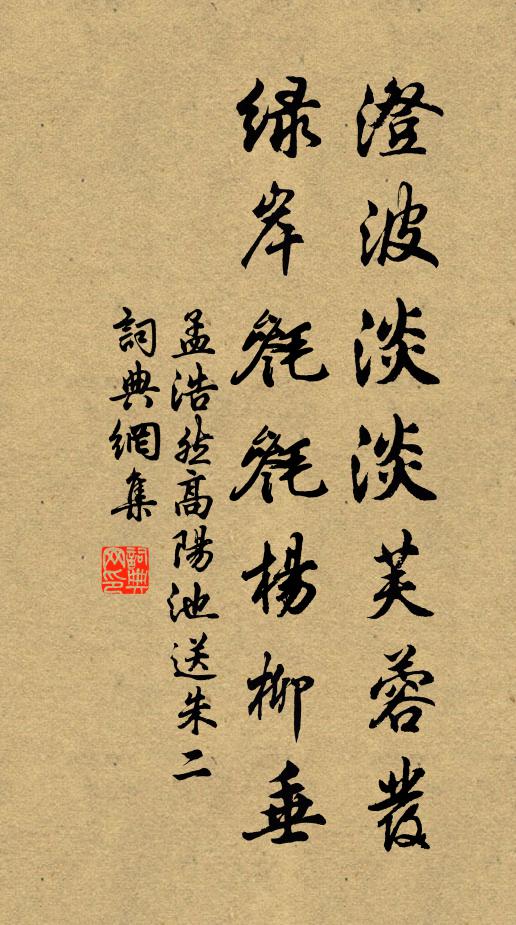 澄波淡淡芙蓉發
綠岸毿毿楊柳垂
孟浩然高陽池送朱二
詞典網集
詞典网印